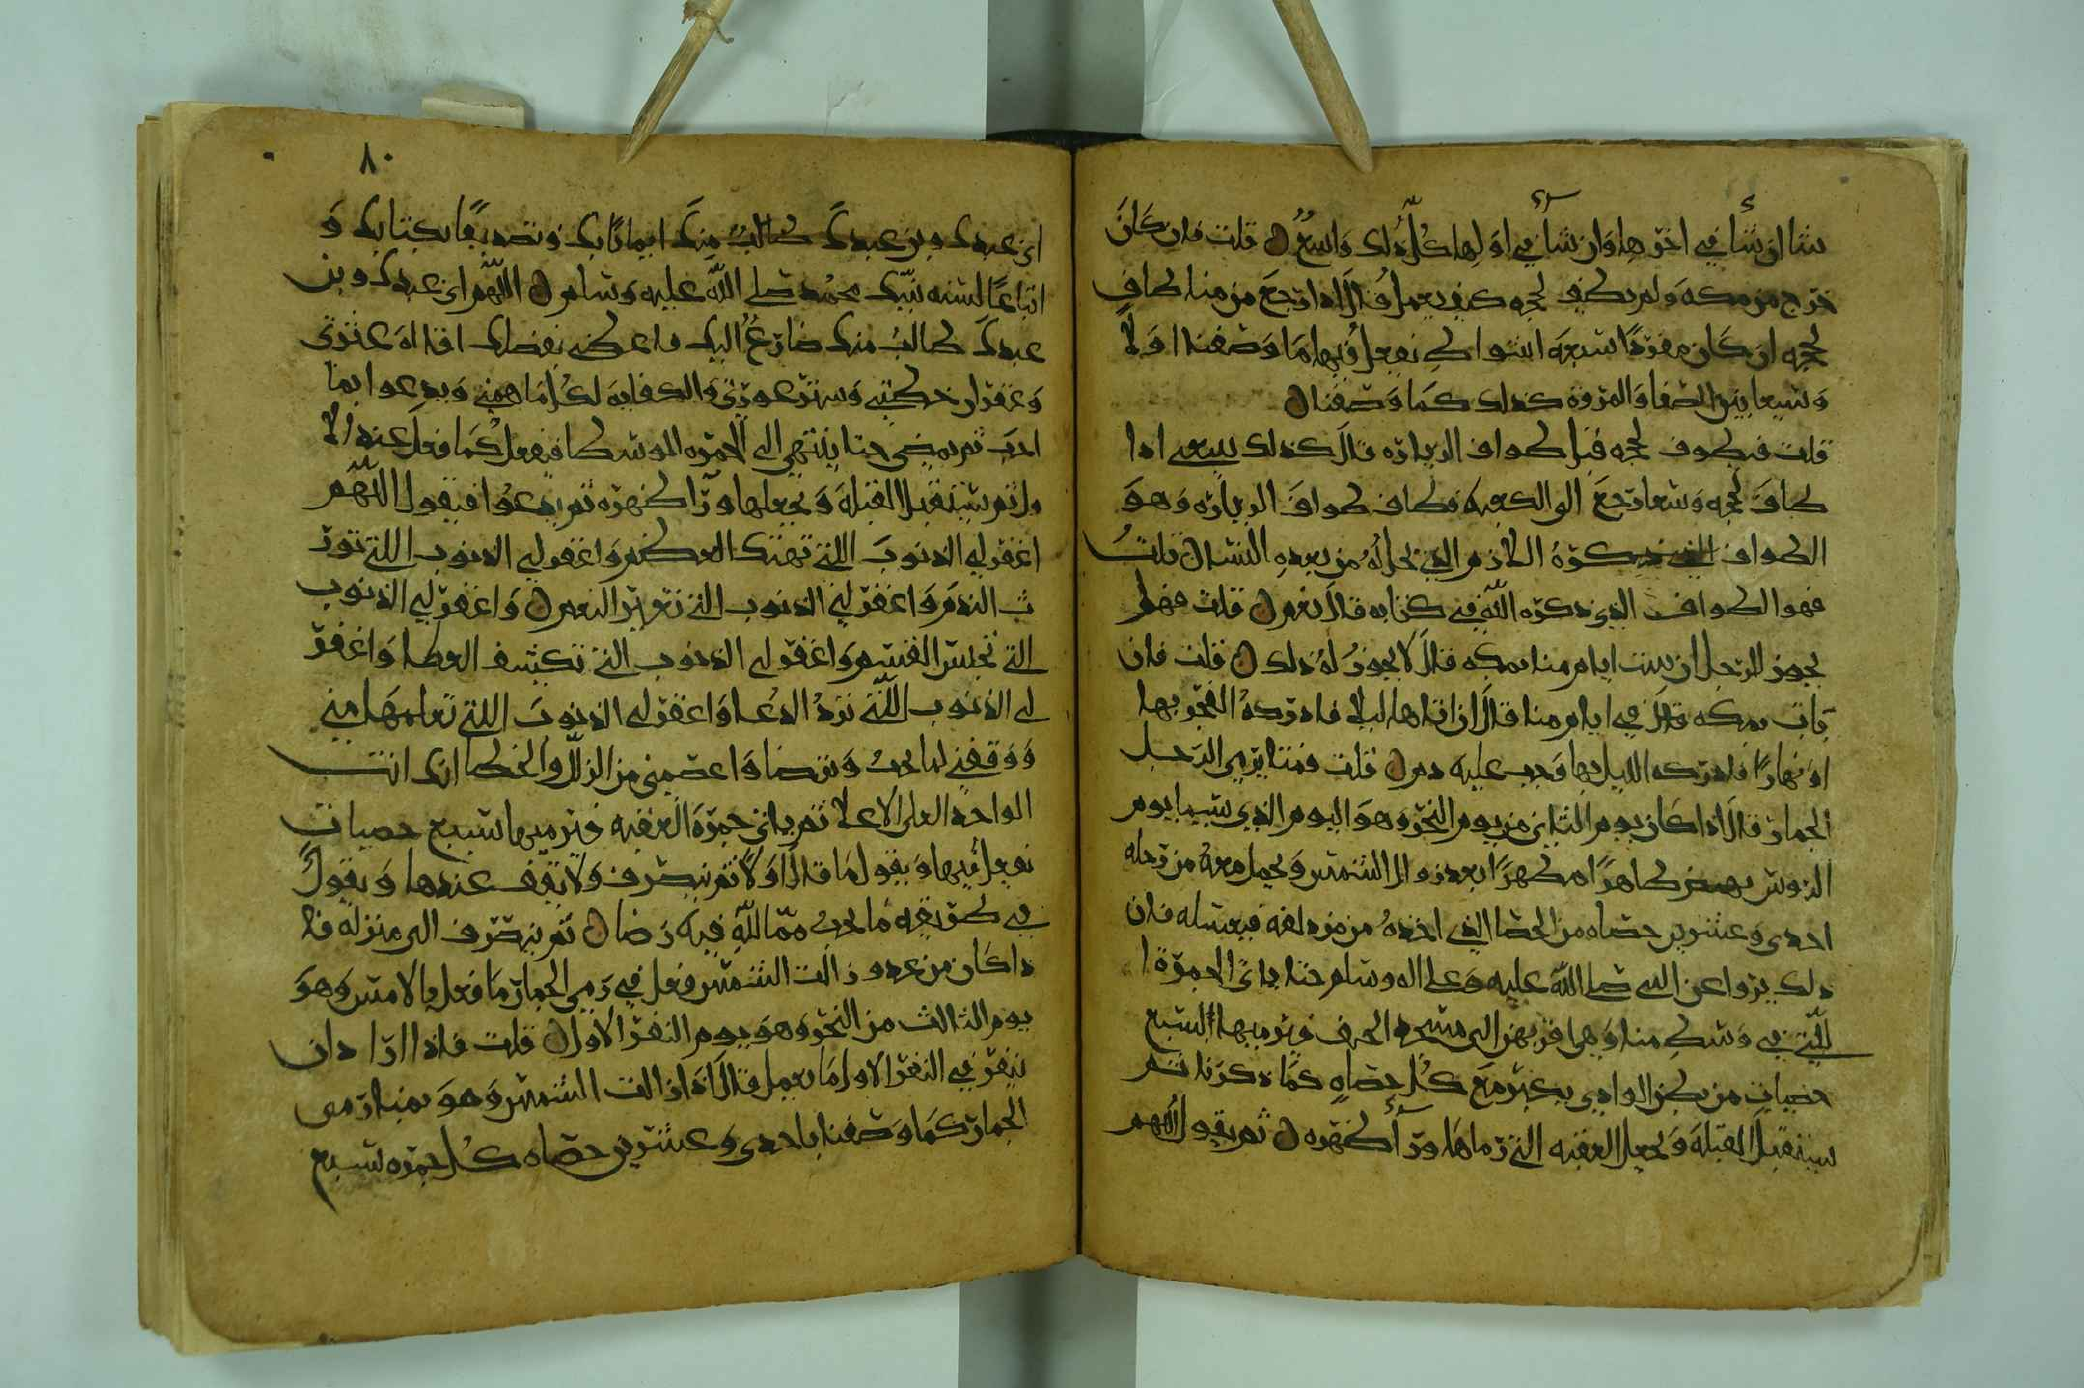 شا ان شا في اخرها وان شا في اولها كل ذلك واسع ن قلت فان كان
خرج من مكه ولم يطف لحجه كيف يعمل قال اذا رجع من منا طاف
لحجه ان كان مفردا سبعه اشواط يفعل فيها ما وصفنا اولا
وسعا بين الصفا والمروة كذلك كما وصفنا ن
قلت فيطوف لحجه قبل طواف الزياره قال كذلك ينبغي اذا
طاف لحجه وسعا رجع الى الكعبه فطاف طواف الزياره وهو
الطواف الذي ذكرة اللازم الذي يحل له من بعده النسا ن قلت
فهو الطواف الذي ذكره الله في كتابه قال نعم ن قلت فهل
يجوز للرجل ان يبيت ايام منا بمكه قال لا يجوز له ذلك ن قلت فان
بات بمكه قال في ايام منا قال ان اتاها ليلا فادركه الفجر بها
او نهارا فادركه الليل بها وجب عليه دم ن قلت فمتا يرمي الرجل
الجمار قال اذا كان يوم الثاني من يوم النحر وهو اليوم الذي يسما يوم
الروس نهض طاهرا مطهرا بعد زوال الشمس ويحمل معه من رحله
احدى وعشرين حصاه من الحصا الذي اخذه من مزدلفه فيغسله فان
ذلك يروا عن النبي صلى الله عليه وعلى اله وسلم حتا ياتي الجمرة ا
للتي في وسط منا وهي اقربهن الى مسجد الخيف فيرميها بسبع
حصيات من بطن الوادي يكبر مع كل حصاه كما ذكرنا ثم
يستقبل القبلة ويجعل العقبه التي رماها ورآ ظهره ن ثم يقول اللهم
٨٠
اني عبدك وبن عبدك طالب منك ايمانا بك وتصديقا بكتابك و
اتباعا لسنه نبيك محمد صلى الله عليه وسلم ن اللهم اني عبدك وبن
عبدك طالب منك ضارع اليك فاعطني بفضلك اقاله عثرتي
وغفران خطيتي وستر عورتي والكفايه لكل ما اهمني ويدعوا بما
احب ثم يمضي حتا ينتهي الى الجمره الوسطا فيفعل كما فعل عند الا
ولى ثم يستقبل القبلة ويجعلها ورآ ظهره ثم يدعوا فيقول اللهم
اغفر لي الذنوب اللتي تهتك العصم واغفر لي الذنوب اللتي تور
ث الندم واغفر لي الذنوب التي تغير النعم ن واغفر لي الذنوب
التي تحبس القسم واغفر لي الذنوب التي تكشف الغطا واغفر
لي الذنوب اللتي ترد الدعا واغفر لي الذنوب اللتي تعلمهامني
ووفقني لما تحب وترضا واعصمني من الزلل والخطا انك انت
الواحد العلي الاعلا ثم ياتي جمرة العقبه فيرميها بسبع حصيات
يفعل فيها ويقول ما قال اولا ثم ينصرف ولا يقف عندها ويقول
في طريقه ما احب مما لله فيه رضا ن ثم ينصرف الى منزله فا
ذا كان من غد وزالت الشمس فعل في رمي الجمار ما فعل بالامس وهو
يوم الثالث من النحر وهو يوم النفر الاول ن قلت فاذا اراد ان
ينفر في النفر الاول ما يعمل قال اذا زالت الشمس وهو بمنا رمى
الجمار كما وصفنا باحدى وعشرين حصاه كل جمره بسبع